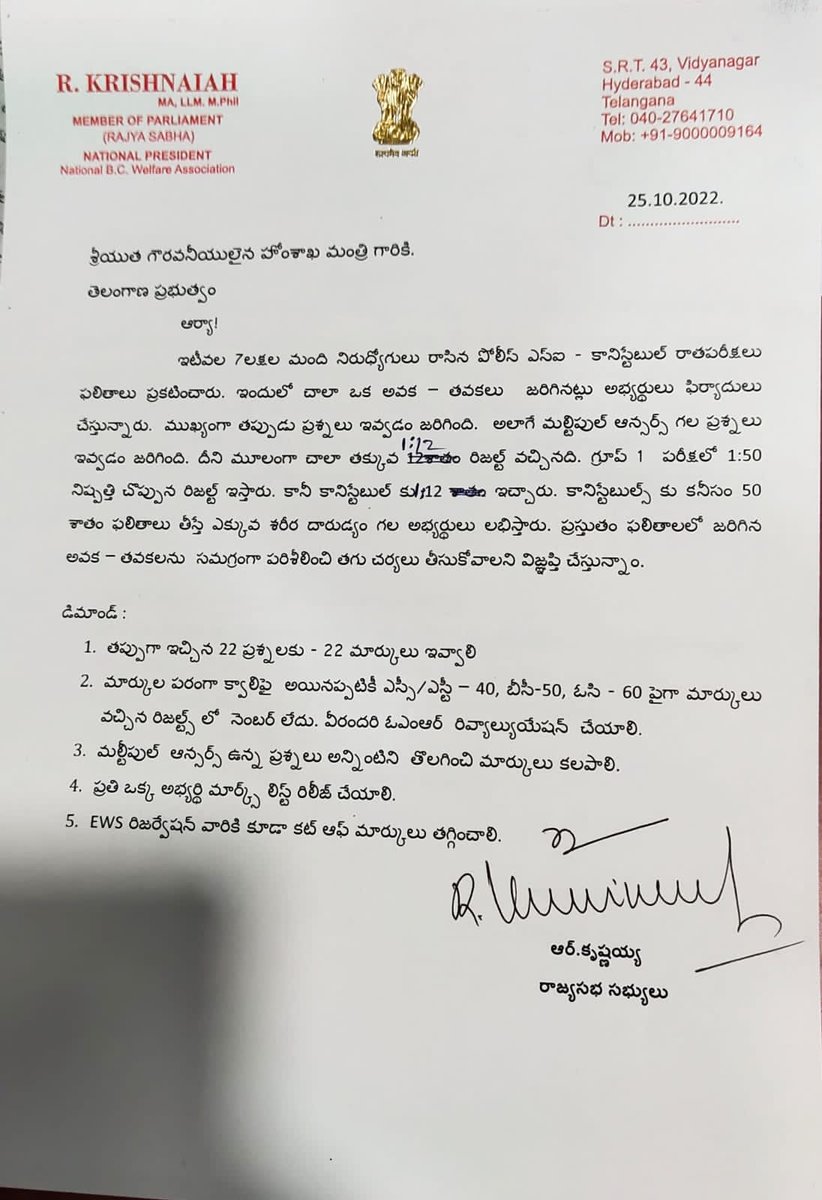 R. KRISHNAIAH
MA, LLM. M.Phil
MEMBER OF PARLIAMENT
(RAJYA SABHA)
NATIONAL PRESIDENT
National B.C. Welfare Association
सत्यमेव जयते
S.R.T. 43, Vidyanagar
Hyderabad - 44
Telangana
Tel: 040-27641710
Mob: +91-9000009164
25.10.2022.
Dt : ..........................
శ్రీయుత గౌరవనీయులైన హోంశాఖ మంత్రి గారికి.
తెలంగాణ ప్రభుత్వం
ఆర్యా!
ఇటీవల 7లక్షల మంది నిరుద్యోగులు రాసిన పోలీస్ ఎస్ఐ - కానిస్టేబుల్ రాతపరీక్షలు
ఫలితాలు ప్రకటించారు. ఇందులో చాలా ఒక అవక – తవకలు జరిగినట్లు అభ్యర్థులు ఫిర్యాదులు
చేస్తున్నారు. ముఖ్యంగా తప్పుడు ప్రశ్నలు ఇవ్వడం జరిగింది. అలాగే మల్టిపుల్ ఆన్సర్స్ గల ప్రశ్నలు
ఇవ్వడం జరిగింది. దీని మూలంగా చాలా తక్కువ 1:12 12శాతం రిజల్ట్ వచ్చినది. గ్రూప్ 1 పరీక్షలో 1:50
నిష్పత్తి చొప్పున రిజల్ట్ ఇస్తారు. కానీ కానిస్టేబుల్ కు 1:12 శాతం ఇచ్చారు. కానిస్టేబుల్స్ కు కనీసం 50
శాతం ఫలితాలు తీస్తే ఎక్కువ శరీర దారుడ్యం గల అభ్యర్థులు లభిస్తారు. ప్రస్తుతం ఫలితాలలో జరిగిన
అవక – తవకలను సమగ్రంగా పరిశీలించి తగు చర్యలు తీసుకోవాలని విజ్ఞప్తి చేస్తున్నాం.
డిమాండ్ :
1. తప్పుగా ఇచ్చిన 22 ప్రశ్నలకు - 22 మార్కులు ఇవ్వాలి
2. మార్కుల పరంగా క్వాలిపై అయినప్పటికీ ఎస్సీ/ఎస్టీ – 40, బీసీ-50, ఓసి - 60 పైగా మార్కులు
వచ్చిన రిజల్ట్స్ లో నెంబర్ లేదు. వీరందరి ఓఎంఆర్ రివ్యాల్యుయేషన్ చేయాలి.
3. మల్టీపుల్ ఆన్సర్స్ ఉన్న ప్రశ్నలు అన్నింటిని తొలగించి మార్కులు కలపాలి.
4. ప్రతి ఒక్క అభ్యర్ధి మార్క్స్ లిస్ట్ రిలీజ్ చేయాలి.
5. EWS రిజర్వేషన్ వారికి కూడా కట్ ఆఫ్ మార్కులు తగ్గించాలి.
ఆర్.కృష్ణయ్య
రాజ్యసభ సభ్యులు